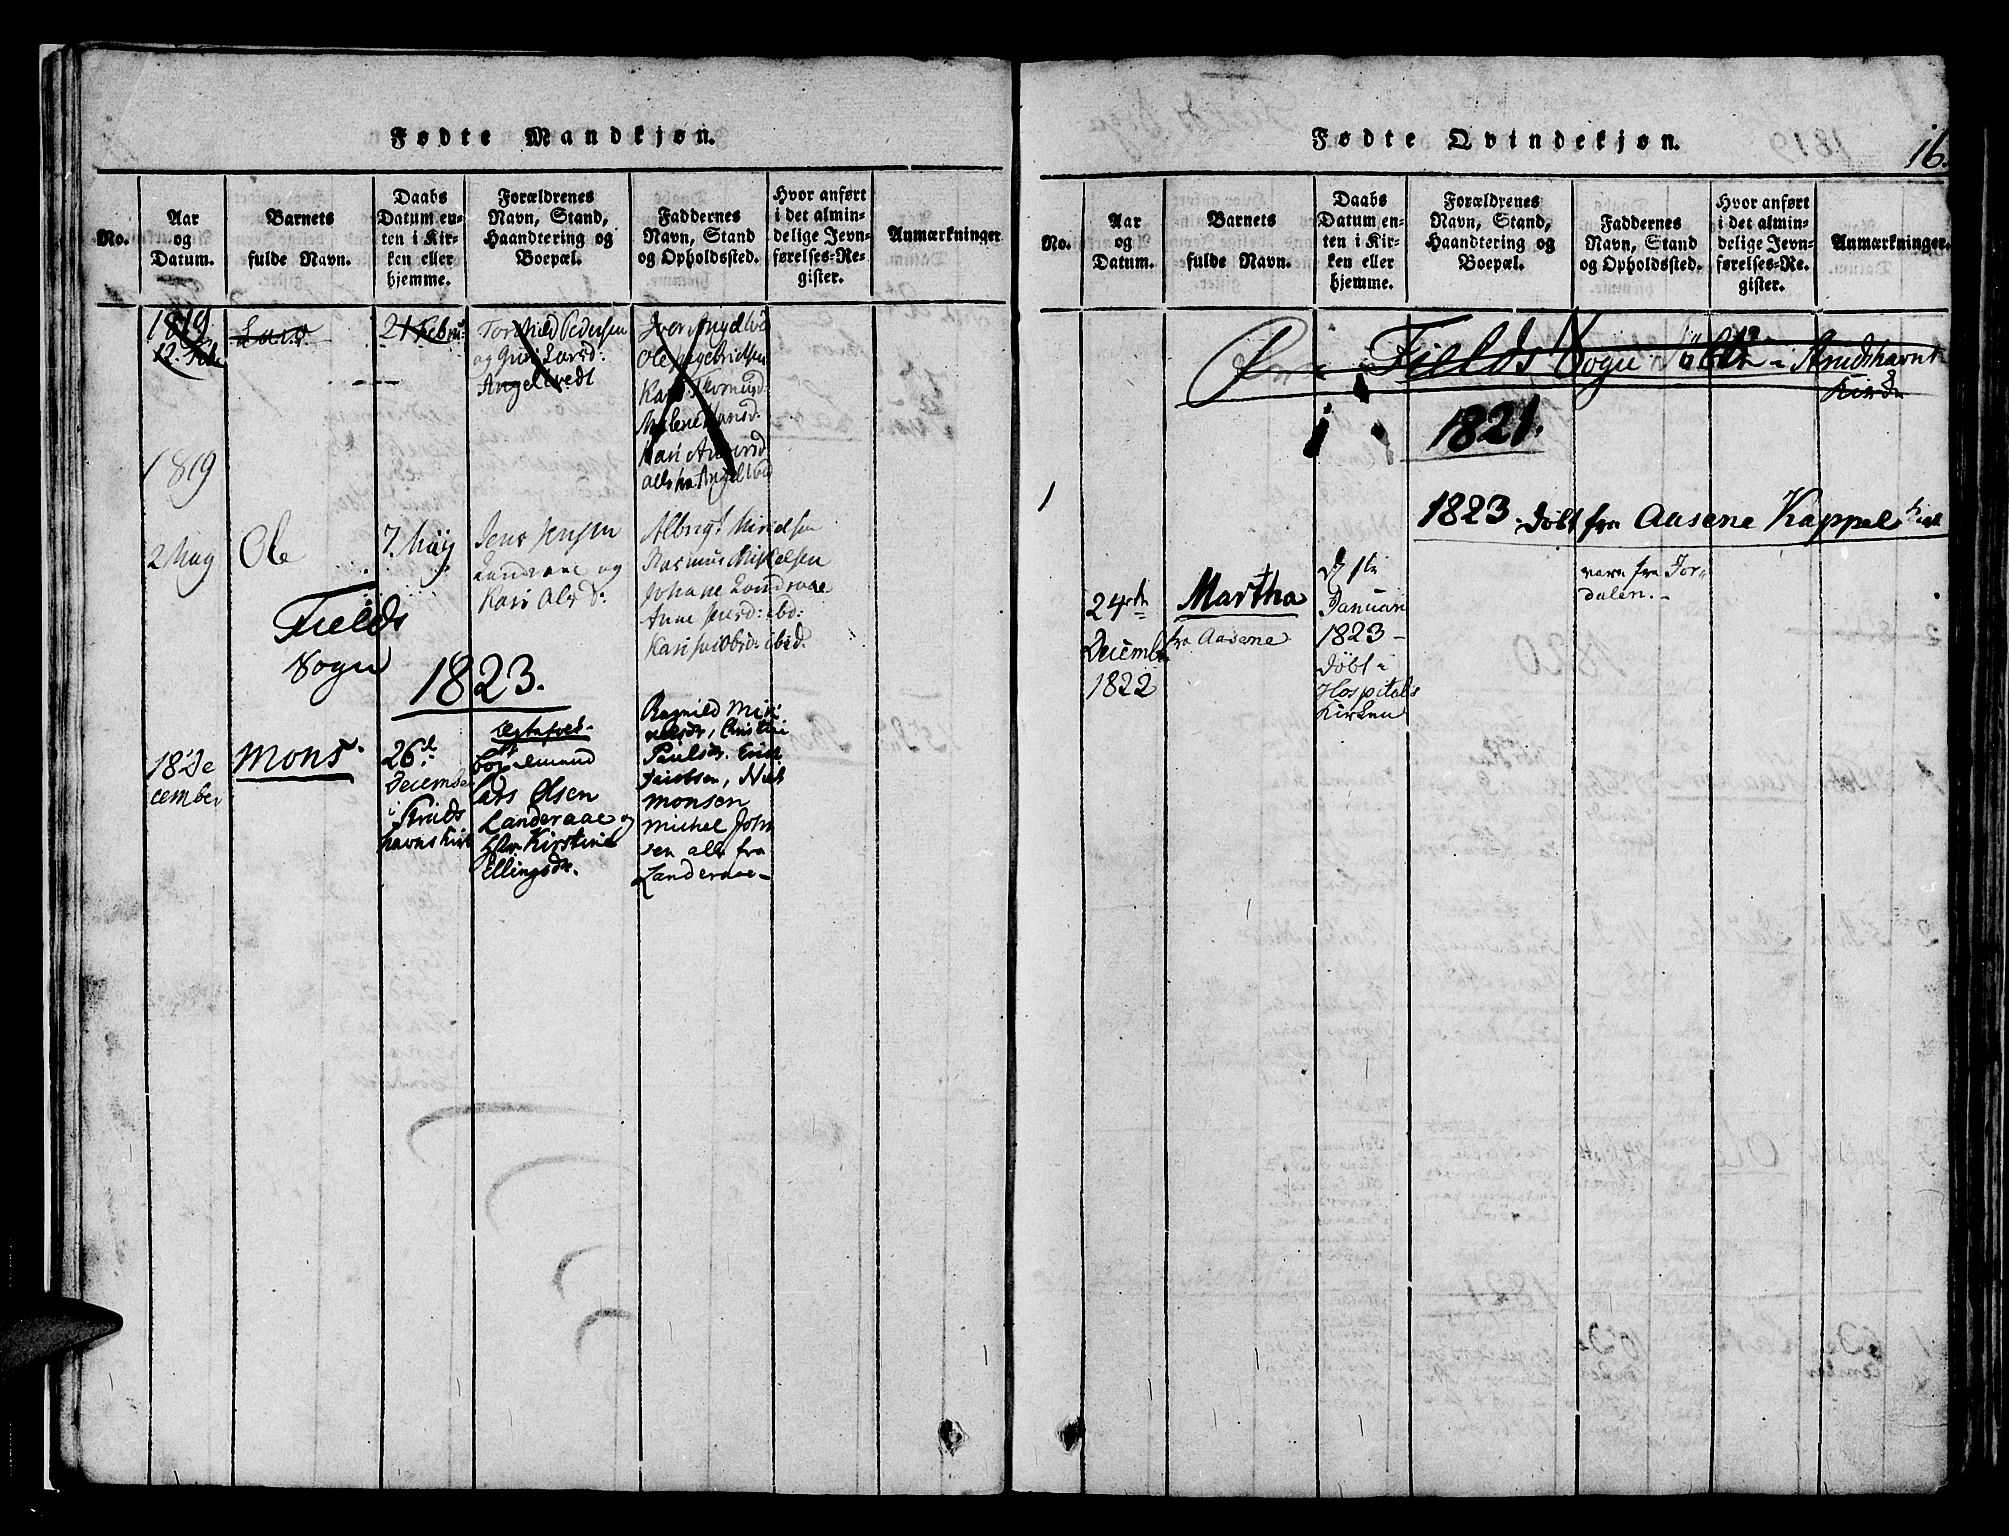 Fødte Mandkjøn.
No.
Aar
og
Datum.
Barnets
fulde Navn.
Daabs
Datum en-
ten i Kir-
ken eller
hjemme.
Forældrenes
Navn, Stand,
Haandtering og
Boepæl.
Faddernes
Navn, Stand
og Opholdssted.
Hvor anført
i det almin-
delige Jevn-
førelses-Re-
gister.
Anmærkninger
1819
12. Feb
Lars.
21 Febru:
Torchild Pedersen
og Guri Larsd:
Angeltvedt
Iver Angeltvd
Ole Ingebridsen
Kari
Malene Hansd:
Kari Andersd
alle fra Angeltvd
1819
2 May
Ole
7. May
Jens Jensen
Landraae og
Kari Olsd:
Albrigt
Rasmus Mikkelsen
Johane Landraae
Anne Jensd: ibd:
Kari Jacobsd: ibid.
Fields
Sogn
1823.
18 De
cember
Mons.
26d
Decembr
i
Struds
havns Kirk
Ægtefolk
Lars Olsen
Landeraae og
Hstr Kirstine
Ellingsdr.
Ragnild Mik
kelsdr, Christi
Paulsdr. Erik
Jacobsen, Niels
Monsen
Michel John
sen alle fra
Landeraae-
Fødte Qvindekjøn.
16.
No.
Aar
og
Datum.
Barnets
fulde Navn.
Daabs
Datum en-
ten i Kir-
ken eller
hjemme.
Forældrenes
Navn, Stand,
Haandtering og
Boepæl.
Faddernes
Navn, Stand
og Opholdssted.
Hvor anført
i det almin-
delige Jevn-
førelses-Re-
gister.
Anmærkninger.
Fra Fields Sogn döbt i Strudshavns
Kirke
1821.
1
1823 döbt fra Aasene Kappel Kirk
24de
Decembr
1822
Martha
fra Aasane
D 1ste
Januari
1823-
Döbt i
Hospitals
Kirken
vare fra Jor-
dalen.-